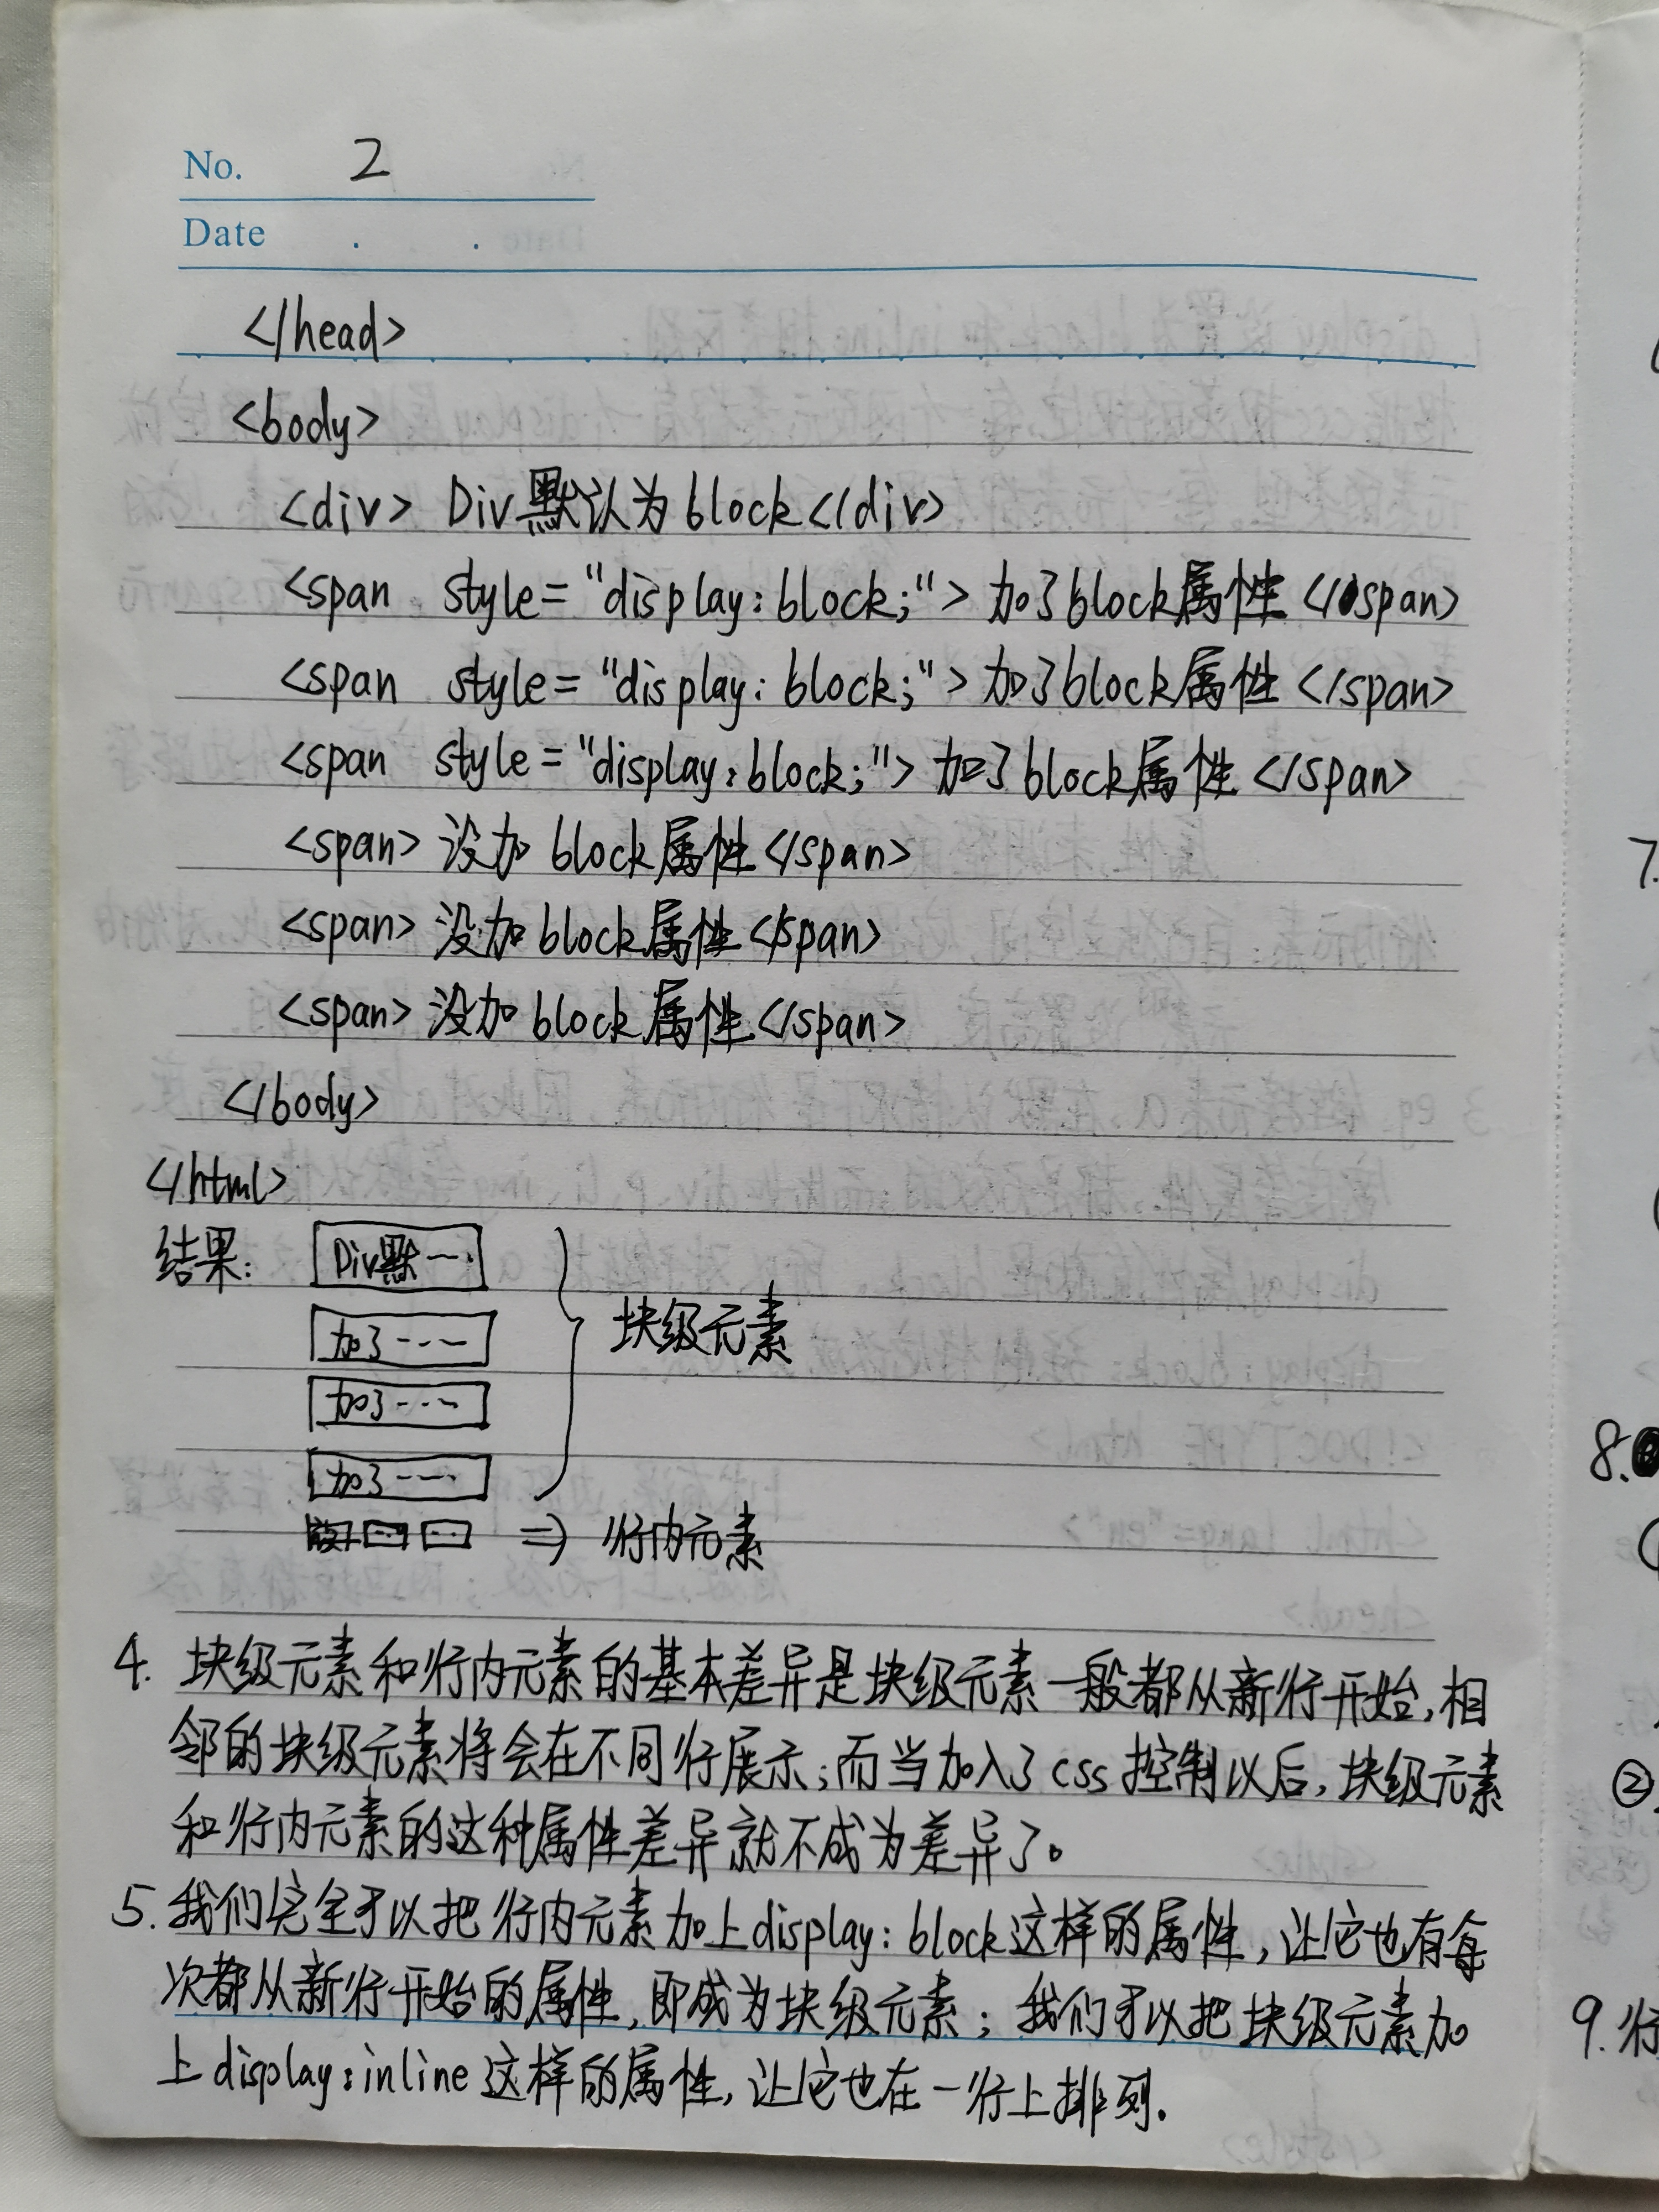 No. 2
Date . .
</head>
<body>
<div> Div默认为block</div>
<span style="display:block;">加了block属性</span>
<span style="display:block;">加了block属性</span>
<span style="display:block;">加了block属性</span>
<span>没加block属性</span>
<span>没加block属性</span>
<span>没加block属性</span>
</body>
</html>
结果:
Div默一..
加了---
块级元素
加了---
加了---
⇒ 行内元素
4. 块级元素和行内元素的基本差异是块级元素一般都从新行开始,相
邻的块级元素将会在不同行展示;而当加入了css控制以后,块级元素
和行内元素的这种属性差异就不成为差异了。
5. 我们完全可以把行内元素加上display:block这样的属性,让它也有每
次都从新行开始的属性,即成为块级元素;我们可以把块级元素加
上display:inline这样的属性,让它也在一行上排列.
7.
8.
②
9. 行